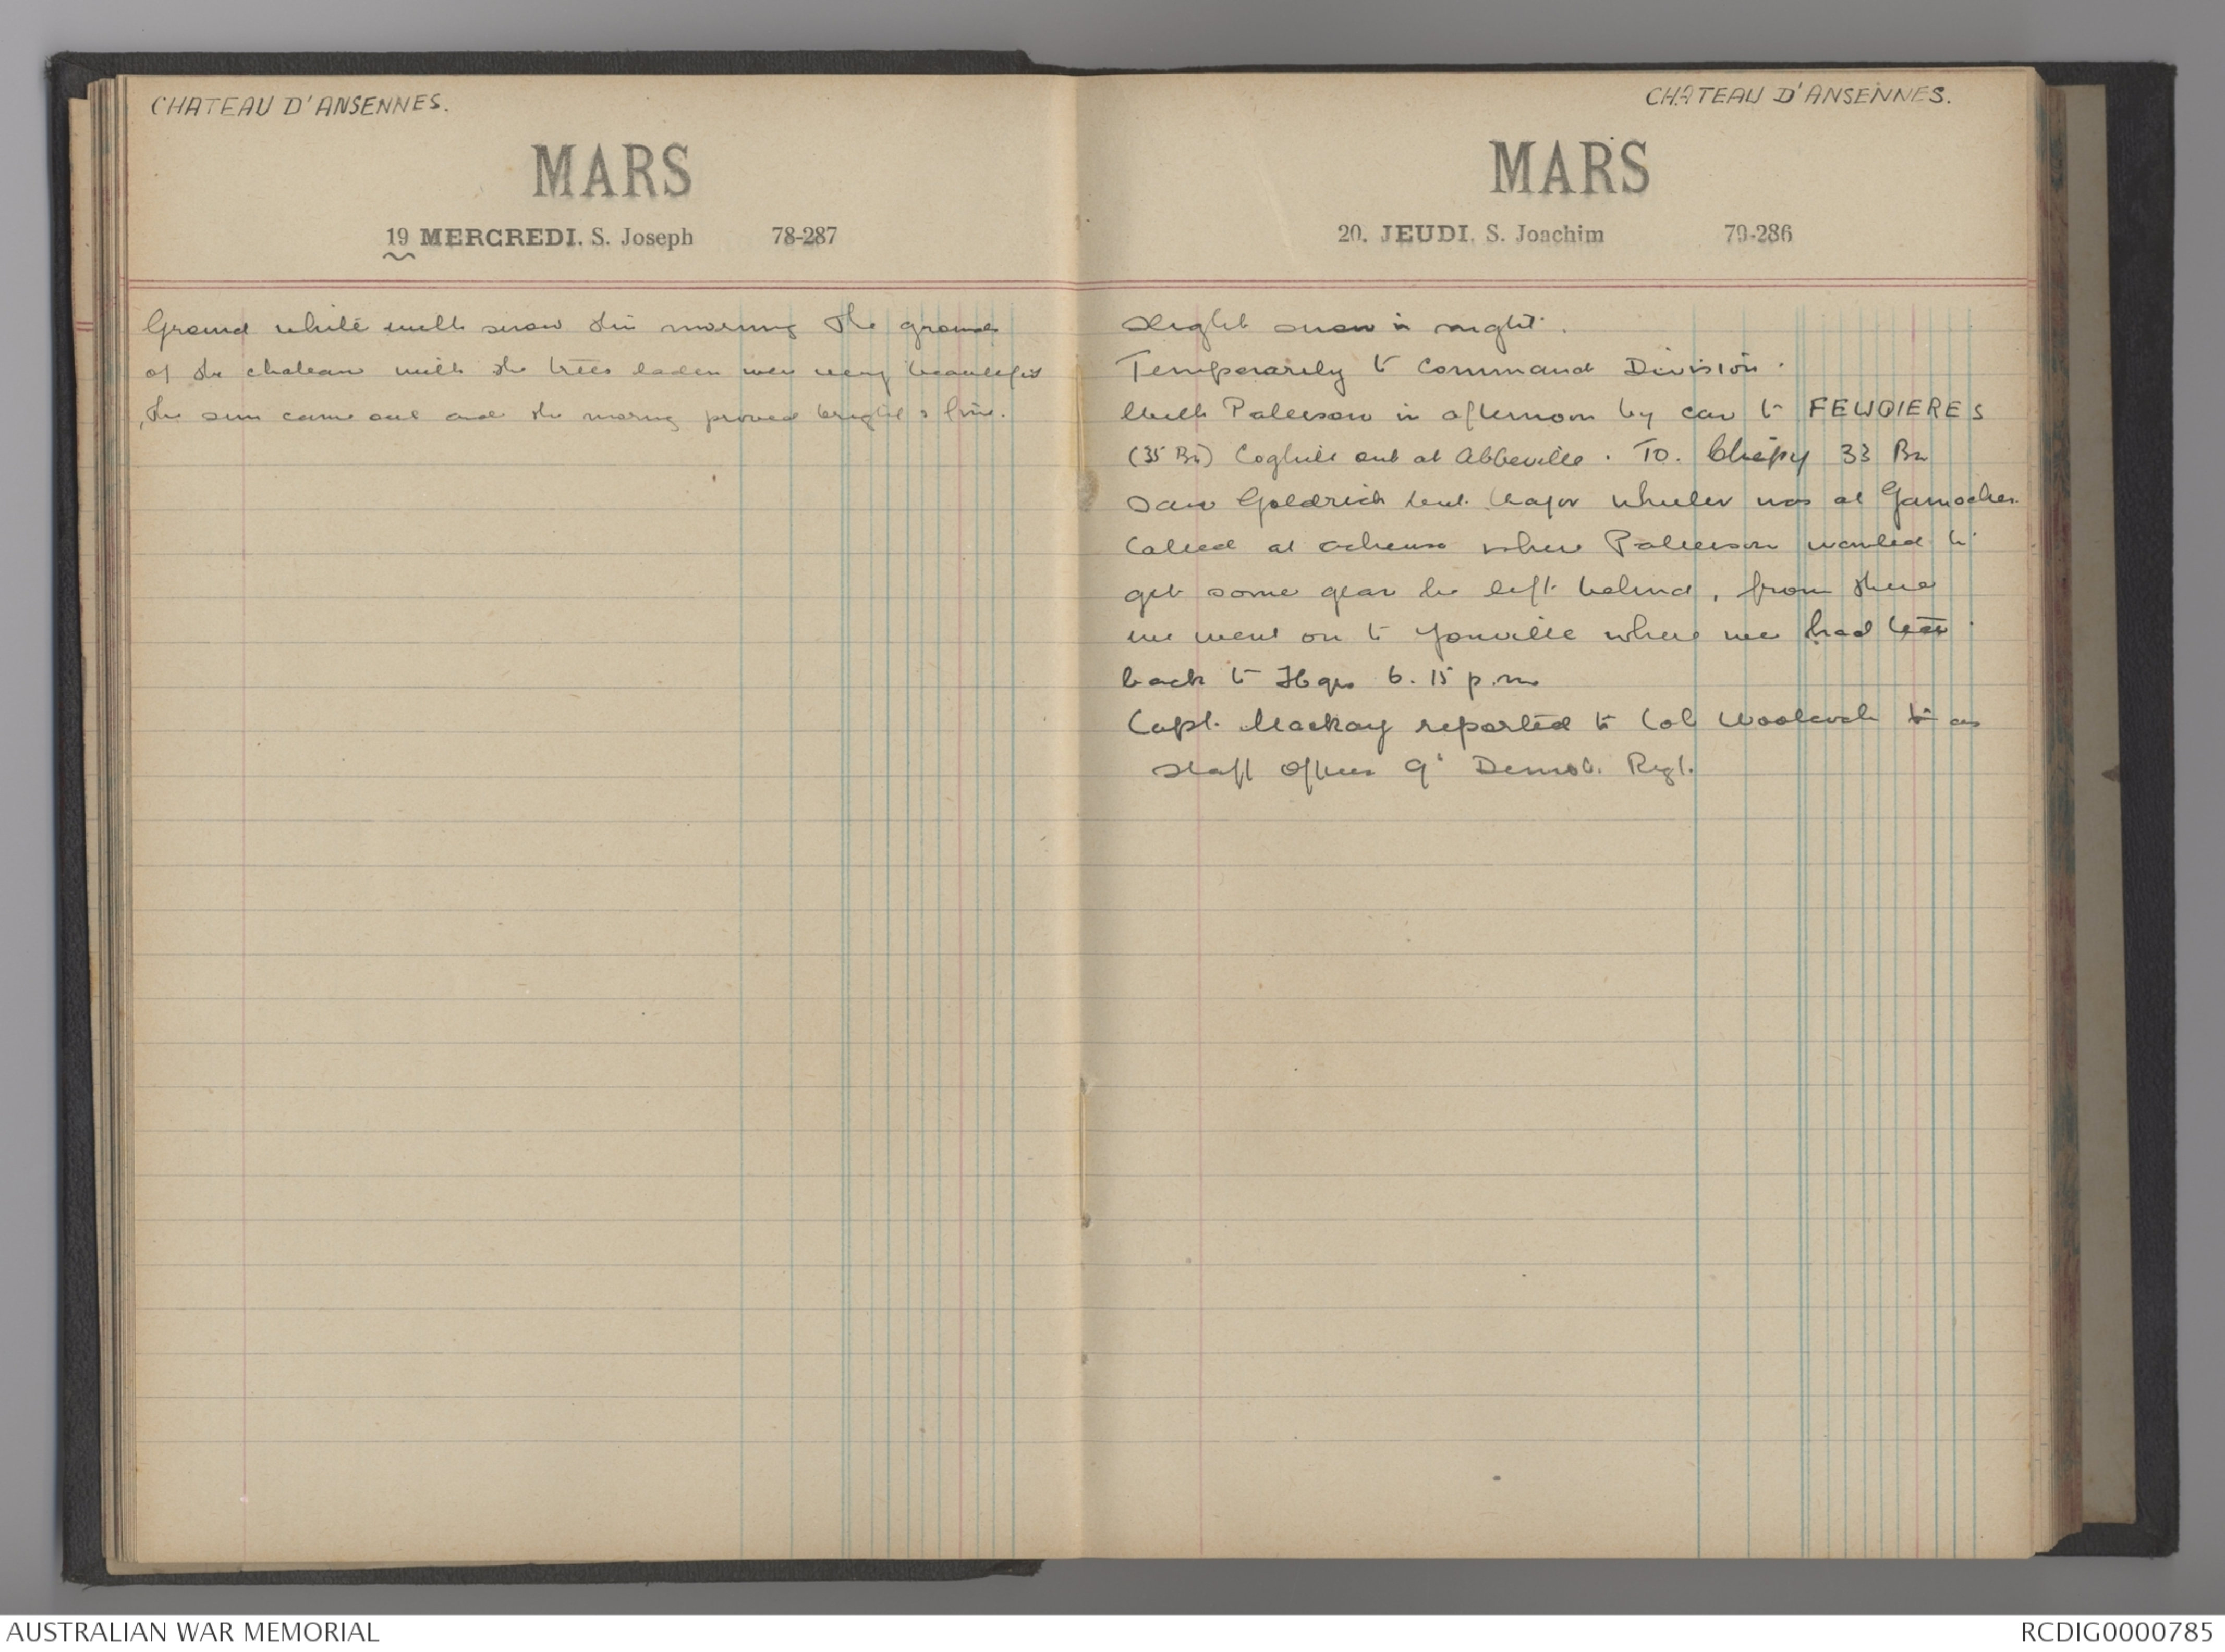 CHATEAU D'ANSENNES.
MARS
19 MERCREDI. S. Joseph 78-287
Ground white with snow this morning The grounds
of the chateau with the trees laden were very beautiful
the sun came out and the morng proved bright & fine.
CHATEAU D'ANSENNES.
MARS
20. JEUDI. S. Joachim 79-286
Slight snow in night.
Temporarily to Command Division.
With Paterson in afternoon by car to FEUQIERES
(35 Bn) Coghill out at Abbeville. To. Chépy 33 Bn
Saw Goldrick but Major Wheeler was at Gamaches.
Called at Acheux where Paterson wanted to
get some gear he left behind, from there
we went on to Yonville where we had tea
back to Hqrs 6.15 p.m
Capt. Mackay reported to Col Woolcock to as
Staff Officer 9' Demob. Regt.
AUSTRALIAN WAR MEMORIAL
RCDIG0000785